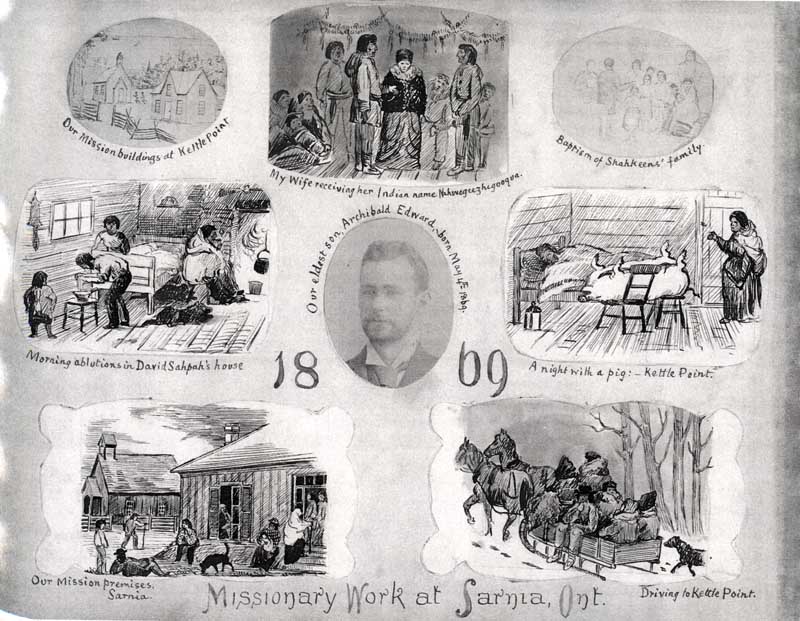 Our Mission buildings at Kettle Point
My Wife receiving her Indian name
Baptism of Shahkeens' family.
Our eldest son, Archibald Edward, born May 4th 1869.
Morning ablutions in David Sahpah's house
1869
A night with a pig:- Kettle Point.
Our Mission premises.
Sarnia.
Driving to Kettle Point.
Missionary Work at Sarnia, Ont.